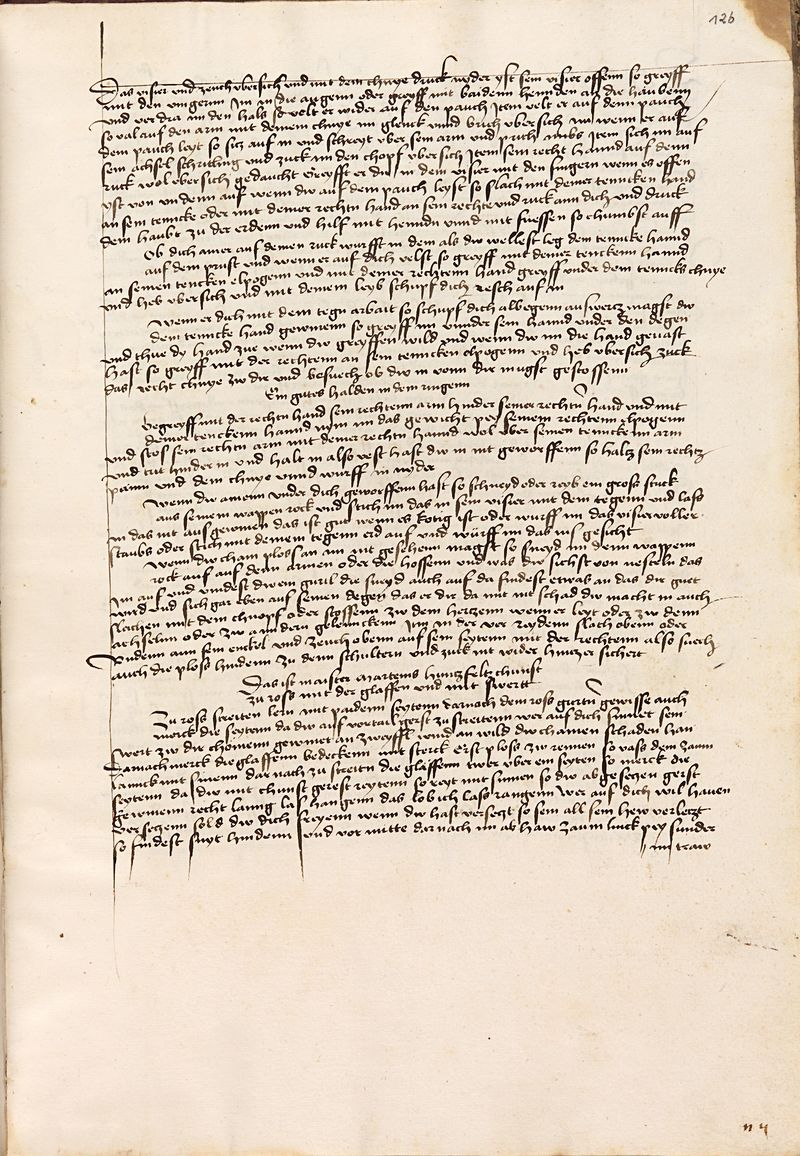 126
Das visier und zeuch ubersich und mit dem chnye druck nyder yst sein visier offenn so greyff
mit den vingernn Im in die augenn oder greyff mit baidenn henndenn an die haubenn
und ver dra im den hals so velt er wider auf den pauch Item velt er auf denn pauch
so val auf den arm mit deinem chnye im glenck unnd prich ubersich im wenn er auff
dem pauch leyt so sitz auf in und schreyt uber sein arm und prich umbs Item sich im auf
sein achsel und zuck im den chopf ubersich Item sein recht hannd auf denn
ruck wol ubersich gedaucht Greyfft er dir in dem visier mit den fingern wenn es offen
yst von undenn auf wenn dw auf dem pauch leyst so slach mit deiner tenncken hand
an sein tenncke oder mit deiner rechtn hand an sein rechte und ruck ann dich und druck
dem haubt zu der erdenn und hilf mit henndn unnd mit fuessen so chumbst auff
Ob dich ainer auf deinen ruck wurfft in dem als dw vellest leg dein tenncke hannd
auf dein prust und wenn er auf dich velst so greyff mit deiner tenckenn hannd
an seinen tencken elpogenn und mit deiner rechtenn hand greyff under dem tennckh chnye
und heb ubersich und mit deinem leyb schupf dich resch auf in
Wenn er dich mit dem tegn arbait so schupf dich albegenn auswercz magst dw
dem tenncke hand gewinnenn so greyff im hinder sein hannd under den degen
und thue dy hand zue wenn dw greyffen wild und wenn dw im die hand gevast
hast so greyff mit der rechtenn an sein tenncken elpogenn und heb ubersich zuck
das recht chnye zw dir und besuech ob dw in vonn dir mugst gestossenn
Ein gutes halden in dem ringenn
Begreyff mit der rechtn hand sein rechtenn arm hinder seiner rechtn hand und mit
deiner tenckenn hannd nym im das gewicht pey seinem rechtenn elpogenn
und stos sein rechtn arm mit deiner rechtn hannd wol uber seinen tenncken arm
und trit hinder in und halt in also vest hast dw in nit geworffenn so haltz sein rechtz
painn und dem chnye unnd wurff in nyder
Wenn dw ainenn under dich geworffenn hast so schneyd oder reyb ein gross stuck
aus seinem wappen rock und stich im das in sein visier mit dem tegenn und lass
im das nit ausgewinen das ist gut wenn es kotig ist oder wurff im das visier voller
staubs oder stich mit deinem tegenn erd auf und wurff im das ins gesicht
Wenn dw chain ploss an im nit gesehenn magst so sneyd im denn wappenn
rock auf auf denn armen oder die hossenn und was dw sichst von nesteln das
im auf und vindest dw ein gurtl die sneyd auch auf da findest etwas an das dir guet
wird und sich gar eben auf seinen degen das er dir da mit nit schad dw macht in auch
slachen mit dem chnopf oder stossenn zw dem hertzenn wenn er leyt oder zw denn
achselnn oder zw ainndern gelennckenn Im in der ver slach obenn oder
undenn ann sein enckel und zeuch obenn auf sein seytenn mit der rechtenn also suech
auch die ploss hindenn zu denn schultern und zuck nit wider hintzer sichert
Das ist maister Martenns hunczfeltz chunst
zu ross mit der glaffen und mit swertt
Zu ross streiten lern mit paidenn seytenn darnach dem ross gurtn gewisse auch
merck die seytenn da dw auf vortail gerst zu streitenn wer auf dich sinnet sein
swert zw dir chömenn gewinnet an zweyffl wind an wild dw chainen schaden han
Darnach merck die glaffenn bedeckenn mit sterck erst ploss zw rennen so vass dein zaum
linnck mit sinenn darnach zu streitn die glaffenn wer uber ein seyten so merck die
seytenn da dw mit chunst gerest reytenn so reyt mit sinnen so dw ab gesetzen gerst
gewinenn recht lanng las hangenn das lob ich lass rangenn wer auf dich wil hauen
versetzenn sold dw dich freyenn wenn dw hast versetzt so sein all sein hew verletzt
so findest snyt hindenn und vor mitte darnach im ab haw zaum linck pey sunder
im traw